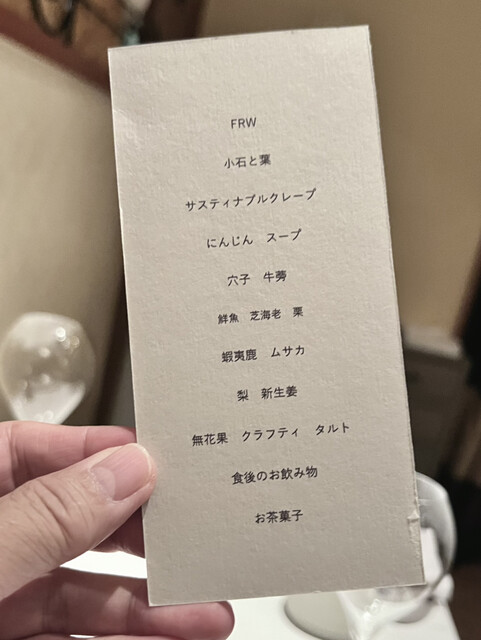 FRW
小石と葉
サスティナブルクレープ
にんじん　スープ
穴子　牛蒡
鮮魚　芝海老　栗
蝦夷鹿　ムサカ
梨　新生姜
無花果　クラフティ　タルト
食後のお飲み物
お茶菓子